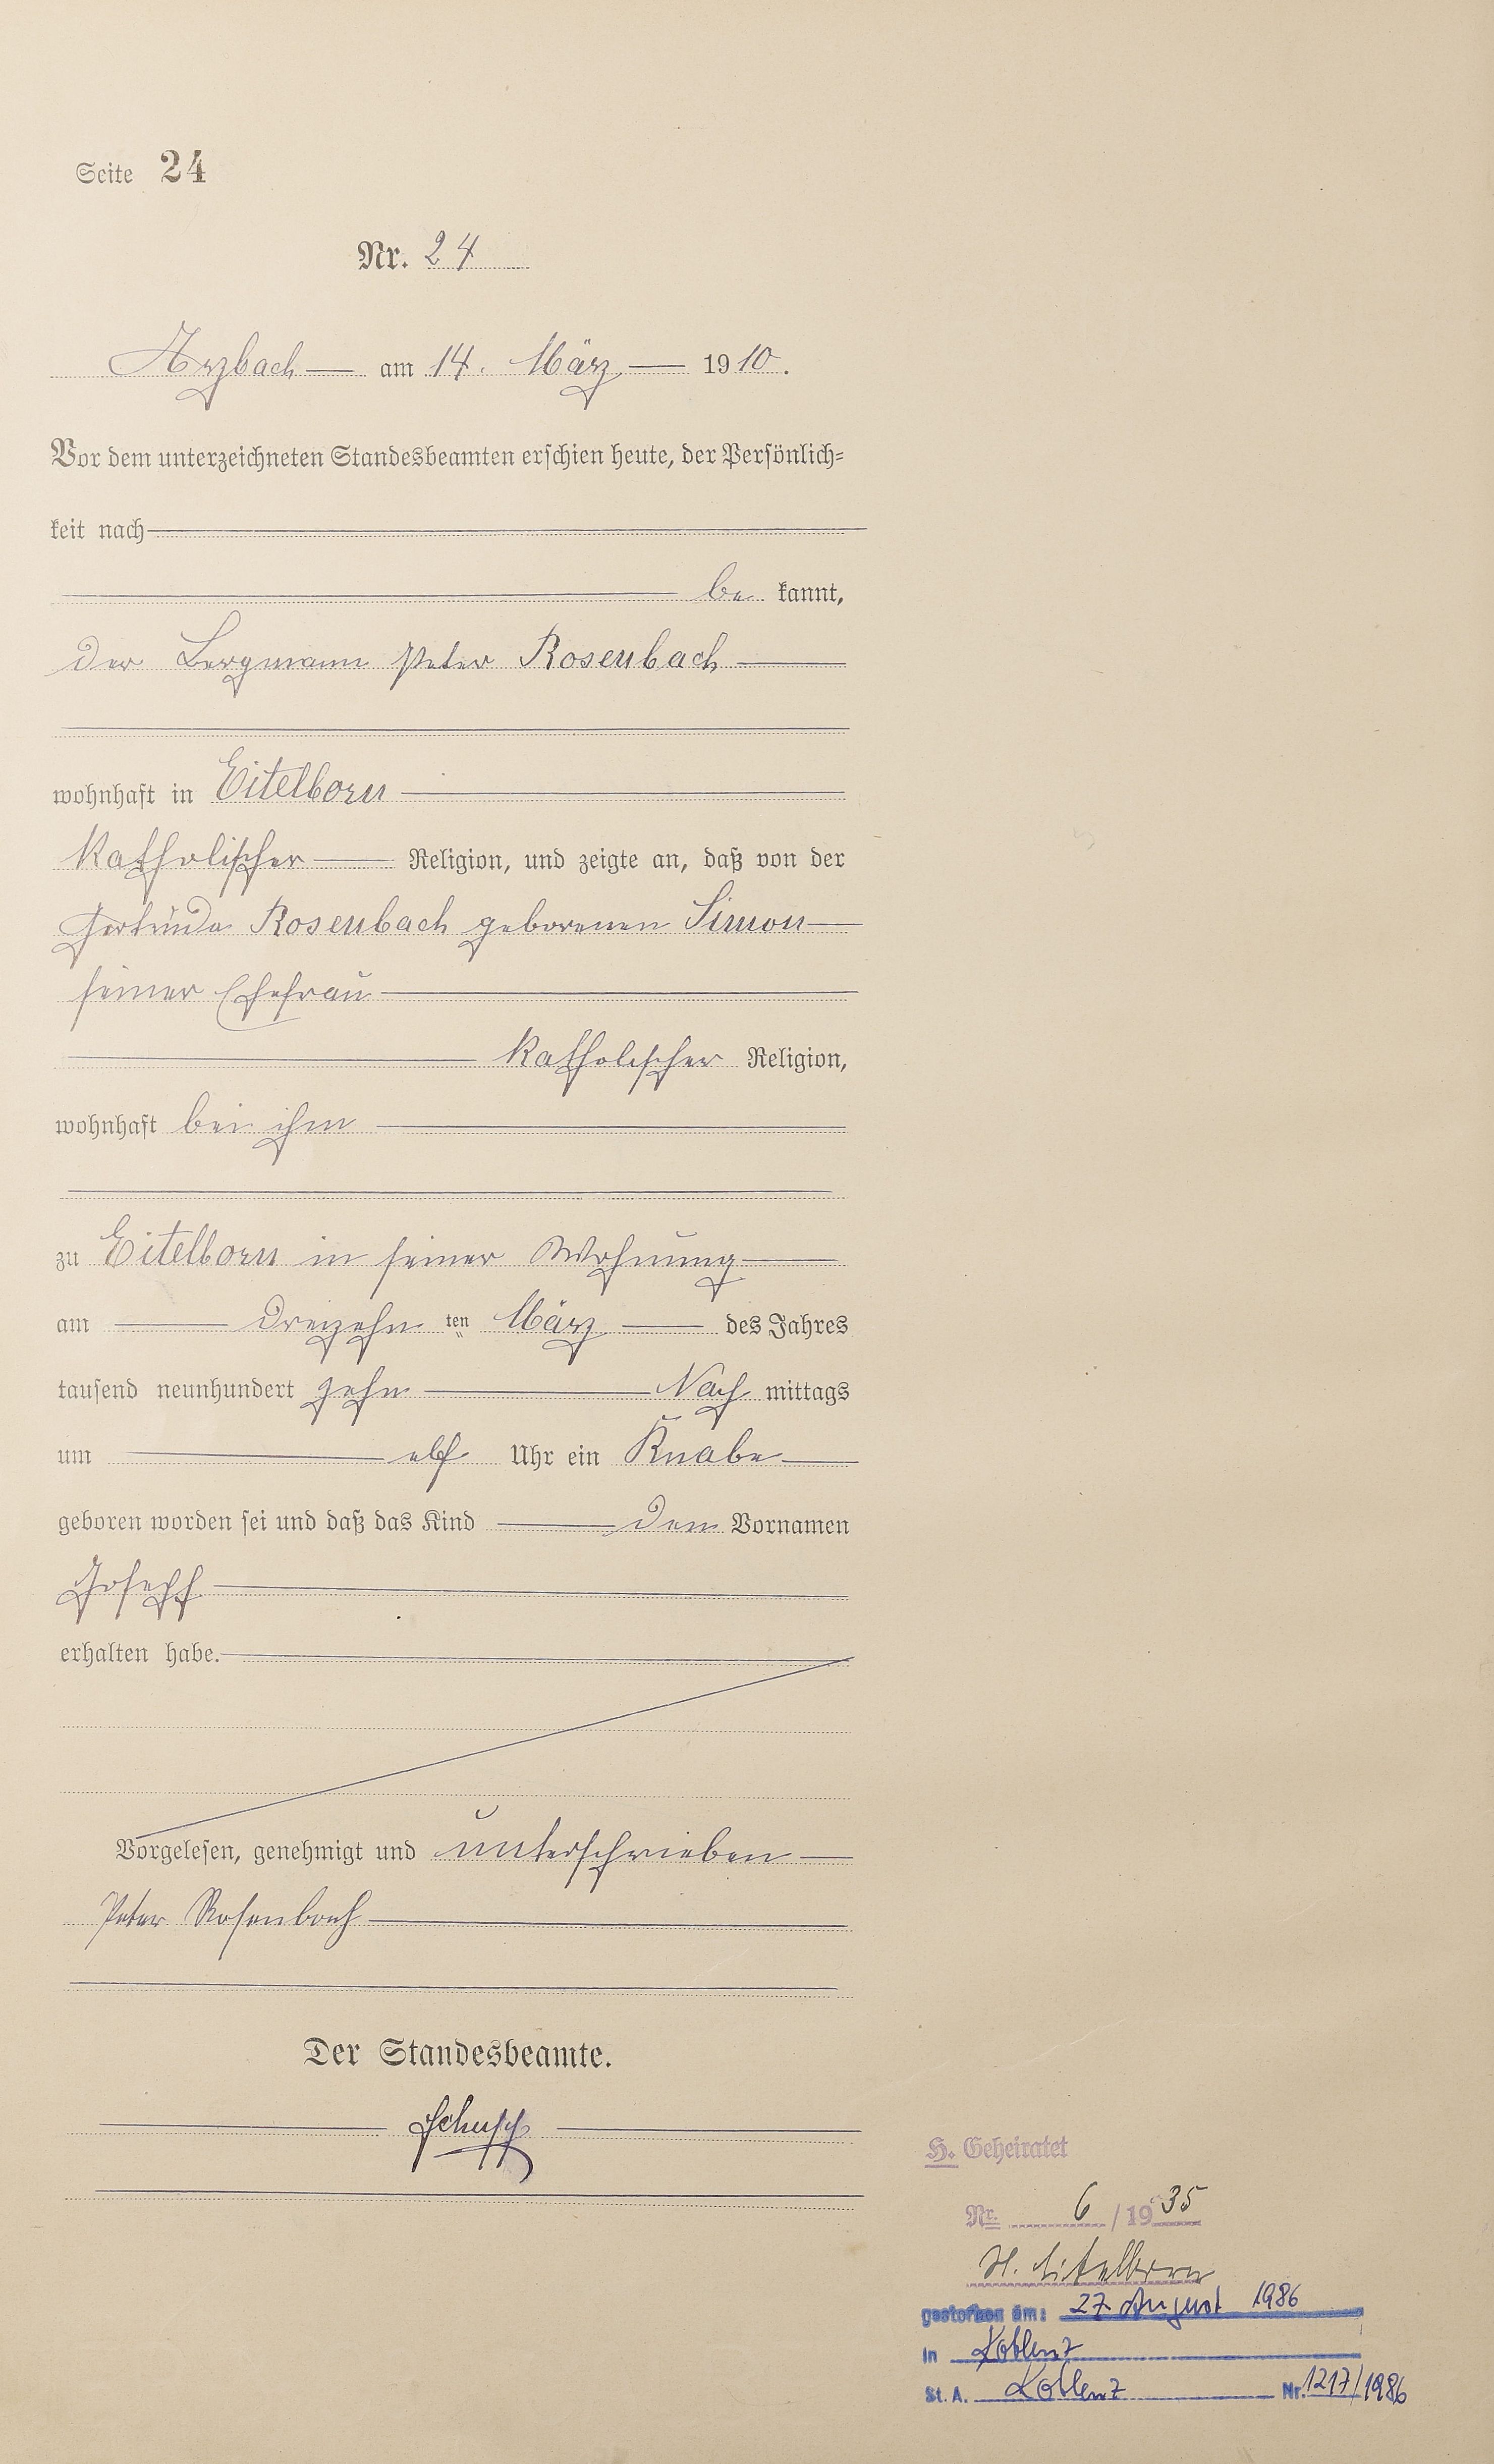 Seite 24
Nr. 24
Arzbach am 14. März 1910.
Vor dem unterzeichneten Standesbeamten erschien heute, der Persönlich-
keit nach
be kannt,
der Bergmann Peter Rosenbach
wohnhaft in Eitelborn
Katholischer Religion, und zeigte an, daß von der
Gertruda Rosenbach geborenen Simon
seiner Ehefrau
Katholischer Religion,
wohnhaft bei ihm
zu Eitelborn in seiner Wohnung
am dreizehn ten März des Jahres
tausend neunhundert zehn Nach mittags
um elf Uhr ein Knabe
geboren worden sei und daß das Kind den Vornamen
Joseph
erhalten habe.
Vorgelesen, genehmigt und unterschrieben
Peter Rosenbach
Der Standesbeamte.
H. Geheiratet
Nr. 6 / 1935
St. Eitelborn
gestorben am: 27. August 1986
in Koblenz
St. A. Koblenz Nr. 1217/1986